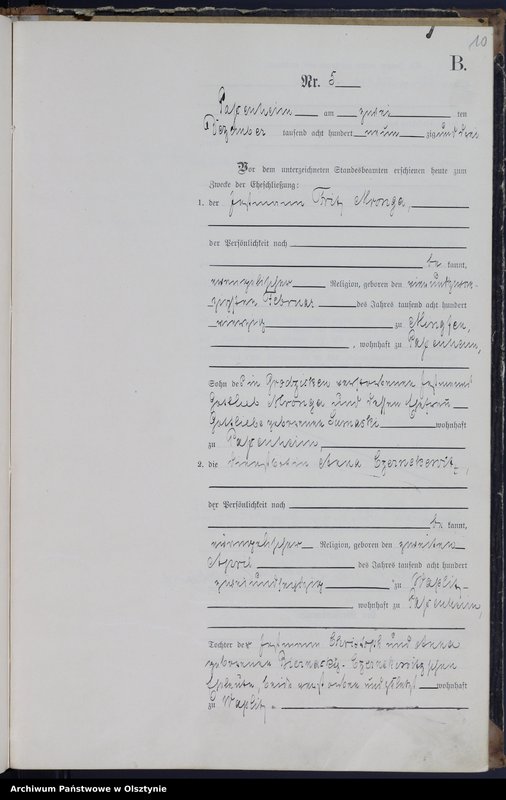 10
B.
Nr. 5
Passenheim am zwei ten
Dezember tausend acht hundert neunzig und drei
Vor dem unterzeichneten Standesbeamten erschienen heute zum
Zwecke der Eheschließung:
1. der Fritz Mronga,
der Persönlichkeit nach
be kannt,
evangelischer Religion, geboren den ein und zwan-
zigsten Februar des Jahres tausend acht hundert
zu
, wohnhaft zu Passenheim,
Sohn des in verstorbenen
Gottlieb Mronga und dessen Ehefrau
Gottliebe geborenen wohnhaft
zu Passenheim,
2. die Anna
der Persönlichkeit nach
be kannt,
evangelischer Religion, geboren den zweiten
April des Jahres tausend acht hundert
zwei und sechzig zu Waplitz
, wohnhaft zu Passenheim,
Tochter der Christoph und Anna
geborenen
Eheleute, beide verstorben und zuletzt wohnhaft
zu Waplitz.
Archiwum Państwowe w Olsztynie